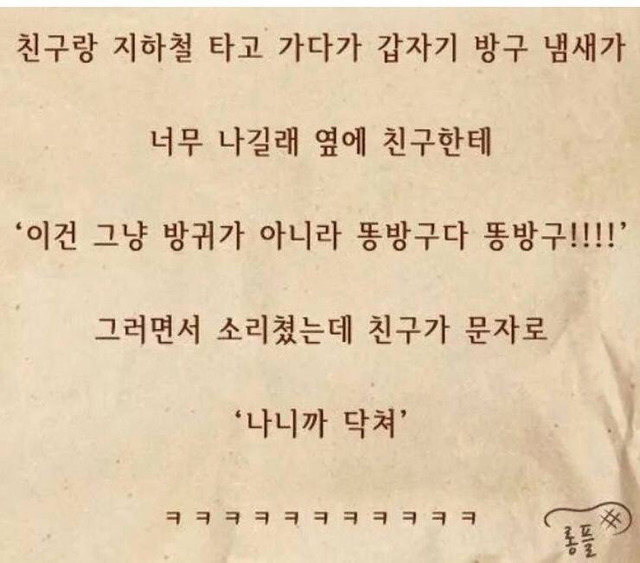 친구랑 지하철 타고 가다가 갑자기 방구 냄새가
너무 나길래 옆에 친구한테
‘이건 그냥 방귀가 아니라 똥방구다 똥방구!!!!’
그러면서 소리쳤는데 친구가 문자로
‘나니까 닥쳐’
ㅋㅋㅋㅋㅋㅋㅋㅋㅋㅋㅋ
롱플